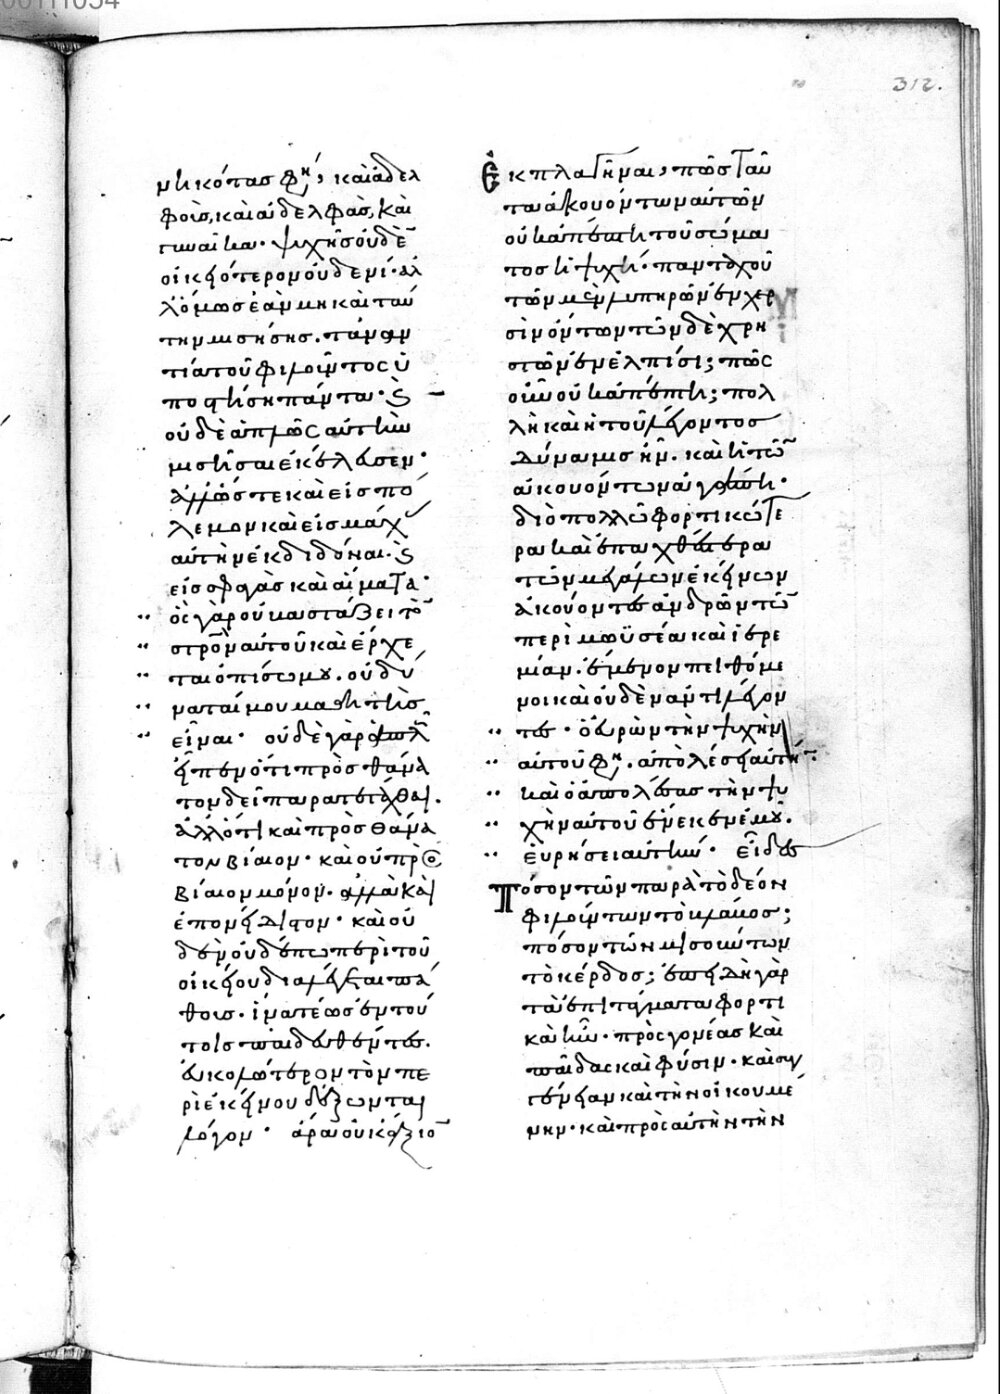 312.
μικότας φη, καὶ ἀδελ
φοὺς, καὶ ἀδελφὰς, καὶ
γυναῖκα· ψυχῆς οὐδὲν
οἰκειότερον οὐδενί· ἀλ
λ' ὅμως ἐὰν μὴ καὶ ταύ
την μισήσης. τἀναν
τία τοῦ φιλοῦντος ὑ
ποστήση πάντα· καὶ
οὐδὲ ἁπλῶς αὐτὴν
μισῆσαι ἐκέλευσεν·
ἀλλ' ὥστε καὶ εἰς πό
λεμον καὶ εἰς μάχ
αὐτὴν ἐκδιδόναι. καὶ
εἰς σφαγὰς καὶ αἵματα·
ὃς γὰρ οὐ βαστάζει τὸν
στρον αὐτοῦ καὶ ἔρχε
ται ὀπίσω μου. οὐ δύ
ναταί μου μαθητὴς
εἶναι· οὐδὲ γὰρ ἁπλῶς
εἶπεν ὅτι πρὸς θάνα
τον δεῖ παρατετάχθαι.
ἀλλ' ὅτι καὶ πρὸς θάνα
τον βίαιον· καὶ οὐ πρὸς
βίαιον μόνον. ἀλλὰ καὶ
ἐπονείδιστον· καὶ οὐ
δὲν οὐδέπω περὶ τοῦ
οἰκείου διαλέγεται πά
θους· ἵνα τέως ἐν τού
τοις παιδευθέντες.
εὐκολώτερον τὸν πε
ρὶ ἐκείνου δέξωνται
λόγον· ἆρα οὐκ ἄξιον
ἐκπλαγῆναι, πῶς ταῦ
τα ἀκουόντων αὐτῶν
οὐκ ἀπέπτη τοῦ σώμα
τος ἡ ψυχή· πανταχοῦ
τῶν μὲν λυπηρῶν ἐν χερ
σὶν ὄντων τῶν δὲ χρη
στῶν ἐν ἐλπίσι; πῶς
οὖν οὐκ ἀπέπτη; πολ
λὴ καὶ ἡ τοῦ λέγοντος
δύναμις ἦν. καὶ ἡ τῶν
ἀκουόντων ἀγάπη·
διὸ πολλῷ φορτικώτε
ρα καὶ ἐπαχθέστερα
τῶν μεγάλων ἐκείνων
ἀκούοντες ἀνδρῶν τῶν
περὶ μωϋσέα καὶ ἱερε
μίαν. ἔμενον πειθόμε
νοι καὶ οὐδὲν ἀντιλέγον
τες· ὁ εὑρὼν τὴν ψυχὴν
αὐτοῦ φη. ἀπολέσει αὐτήν·
καὶ ὁ ἀπολέσας τὴν ψυ
χὴν αὐτοῦ ἕνεκεν ἐμοῦ.
εὑρήσει αὐτήν· εἶδες
πόσον τῶν παρὰ τὸ δέον
φιλούντων τὸ βλάβος;
πόσον τῶν μισούντων
τὸ κέρδος; ἐπειδὴ γὰρ
τὰ ἐπιτάγματα φορτι
κὰ ἦν· πρὸς γονέας καὶ
παῖδας καὶ φύσιν· καὶ συγ
γένειαν καὶ τὴν οἰκουμέ
νην· καὶ πρὸς αὐτὴν τὴν